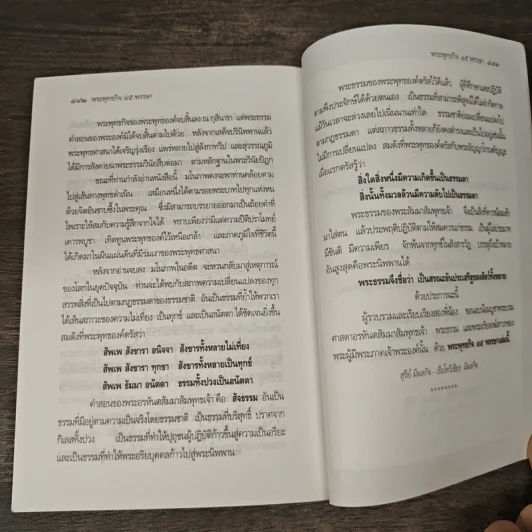 ๔๔๒ พระพุทธกิจ ๔๕ พรรษา
พระพุทธกิจของพระพุทธองค์จบสิ้นลง ณ กุสินารา แต่พระธรรม
คำสอนของพระองค์มิได้จบสิ้นตามไปด้วย หลังจากเสด็จปรินิพพานแล้ว
พระพุทธศาสนาได้เจริญรุ่งเรือง แพร่หลายไปสู่ลังกาทวีป และสุวรรณภูมิ
ได้มีการสังคายนาพระธรรมวินัยสืบต่อมา ตามหลักฐานในพระวินัยปิฎก
ขณะที่ท่านกำลังอ่านหนังสือนี้ มโนภาพคงจะพาท่านคล้อยตาม
ไปสู่เส้นทางพุทธดำเนิน เสมือนหนึ่งได้ตามรอยพระบาทไปทุกแห่งหน
ด้วยจิตอันซาบซึ้งในพระคุณ ซึ่งมิสามารถบรรยายออกมาเป็นถ้อยคำที่
ไพเราะให้สมกับความรู้สึกจากใจได้ ทราบเพียงว่ามีแต่ความปีติปราโมทย์
เคารพบูชา เทิดทูนพระพุทธองค์ไว้เหนือเกล้า และภาคภูมิใจที่ชีวิตนี้
ได้เกิดมาในผืนแผ่นดินที่มีร่มเงาของพระพุทธศาสนา
หลังจากอ่านจบลง มโนภาพในอดีต จะหวนกลับมาสู่เหตุการณ์
ของโลกในยุคปัจจุบัน ท่านจะได้พบกับสภาพความเปลี่ยนแปลงของทุก
สรรพสิ่งที่เป็นไปตามกฎธรรมดาของธรรมชาติ อันเป็นธรรมที่ย้ำให้พวกเรา
ได้เห็นสภาวะของความไม่เที่ยง เป็นทุกข์ และเป็นอนัตตา ได้ชัดเจนยิ่งขึ้น
สมดังที่พระพุทธองค์ตรัสว่า
สัพเพ สังขารา อนิจจา สังขารทั้งหลายไม่เที่ยง
สัพเพ สังขารา ทุกขา สังขารทั้งหลายเป็นทุกข์
สัพเพ ธัมมา อนัตตา ธรรมทั้งปวงเป็นอนัตตา
คำสอนของพระอรหันตสัมมาสัมพุทธเจ้า คือ สัจธรรม อันเป็น
ธรรมที่มีอยู่ตามความเป็นจริงโดยธรรมชาติ เป็นธรรมที่บริสุทธิ์ ปราศจาก
กิเลสทั้งปวง เป็นธรรมที่ทำให้ปุถุชนผู้ปฏิบัติก้าวขึ้นสู่ความเป็นอริยะ
และเป็นธรรมที่ทำให้พระอริยบุคคลก้าวไปสู่พระนิพพาน
พระพุทธกิจ ๔๕ พรรษา
พระธรรมของพระพุทธองค์ตรัสไว้ดีแล้ว ผู้ศึกษาและปฏิบัติ
ตามพึงประจักษ์ได้ด้วยตนเอง เป็นธรรมที่สามารถพิสูจน์ได้ไม่จำกัดกาล
แม้วันเวลาจะล่วงเลยไปเนิ่นนานเท่าใด ธรรมชาติย่อมเปลี่ยนแปลงไป
ตามกฎธรรมดา แต่สภาวธรรมทั้งหลายก็ยังคงดำรงตนเป็นไปอยู่เช่นนั้น
ไม่มีการเปลี่ยนแปลง สมดังที่พระพุทธองค์ตรัสกับพระอัญญาโกณฑัญญะ
เมื่อแรกตรัสรู้ว่า
สิ่งใดสิ่งหนึ่งมีความเกิดขึ้นเป็นธรรมดา
สิ่งนั้นทั้งมวลล้วนมีความดับไปเป็นธรรมดา
พระธรรมของพระสัมมาสัมพุทธเจ้า จึงเป็นสิ่งที่ควรน้อมเข้า
มาใส่ตน แล้วประพฤติปฏิบัติตามให้สมควรแก่ธรรม
มีขันติ มีความเพียร จักพ้นจากทุกข์ในสังสารวัฏ บรรลุถึงเป้าหมาย
อันสูงสุดคือพระนิพพานได้
พระธรรมจึงชื่อว่า เป็นสรณะอันประเสริฐของสัตว์ทั้งหลาย
ด้วยประการฉะนี้
ผู้รวบรวมและเรียบเรียงสองพี่น้อง ขอนอบน้อมบูชาพระบรม
ศาสดาอรหันตสัมมาสัมพุทธเจ้า พระธรรม และพระอริยสงฆ์สาวกของ
พระผู้มีพระภาคเจ้าพระองค์นั้น ด้วย พระพุทธกิจ ๔๕ พรรษาเล่มนี้
สุรีย์ มีผลกิจ - วิเชียร มีผลกิจ
********